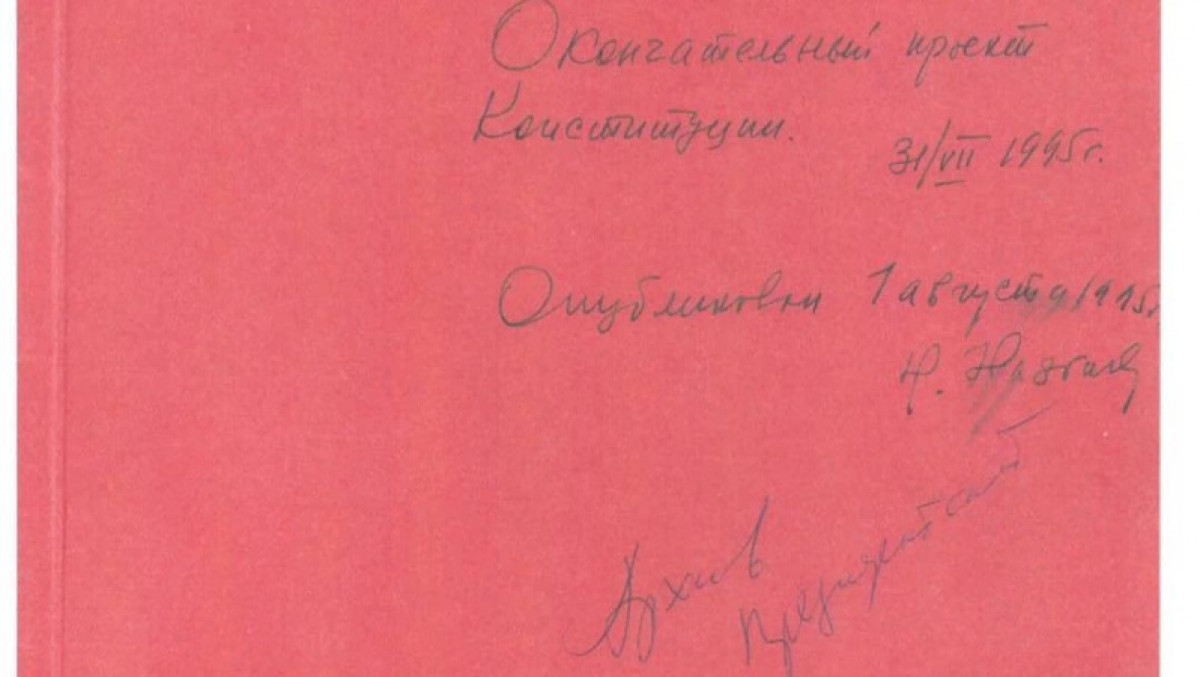 Окончательный проект
Конституции.
31/VII 1995г.
Опубликован 1 августа 1995г.
Н. Назарбаев
Архив
Президентский